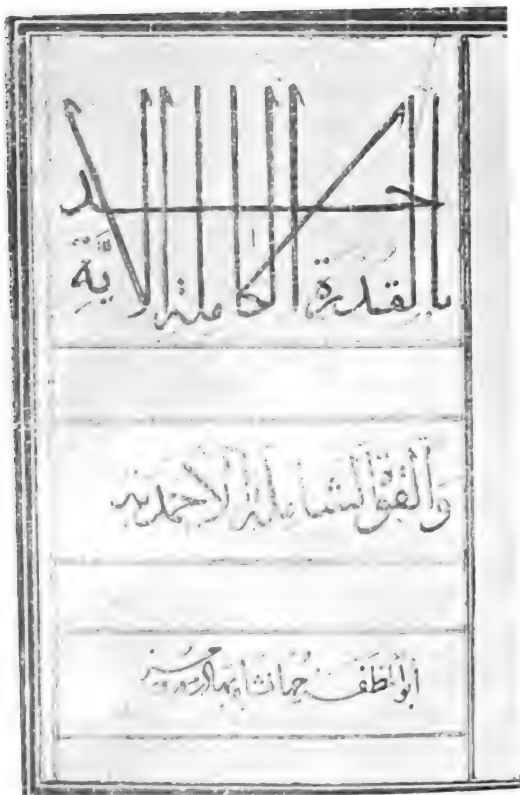 بالقدرة الكاملة الاحدية
والقوة الشاملة الاحمدية
ابو المظفر جهانشاه بهادر سوزوميز